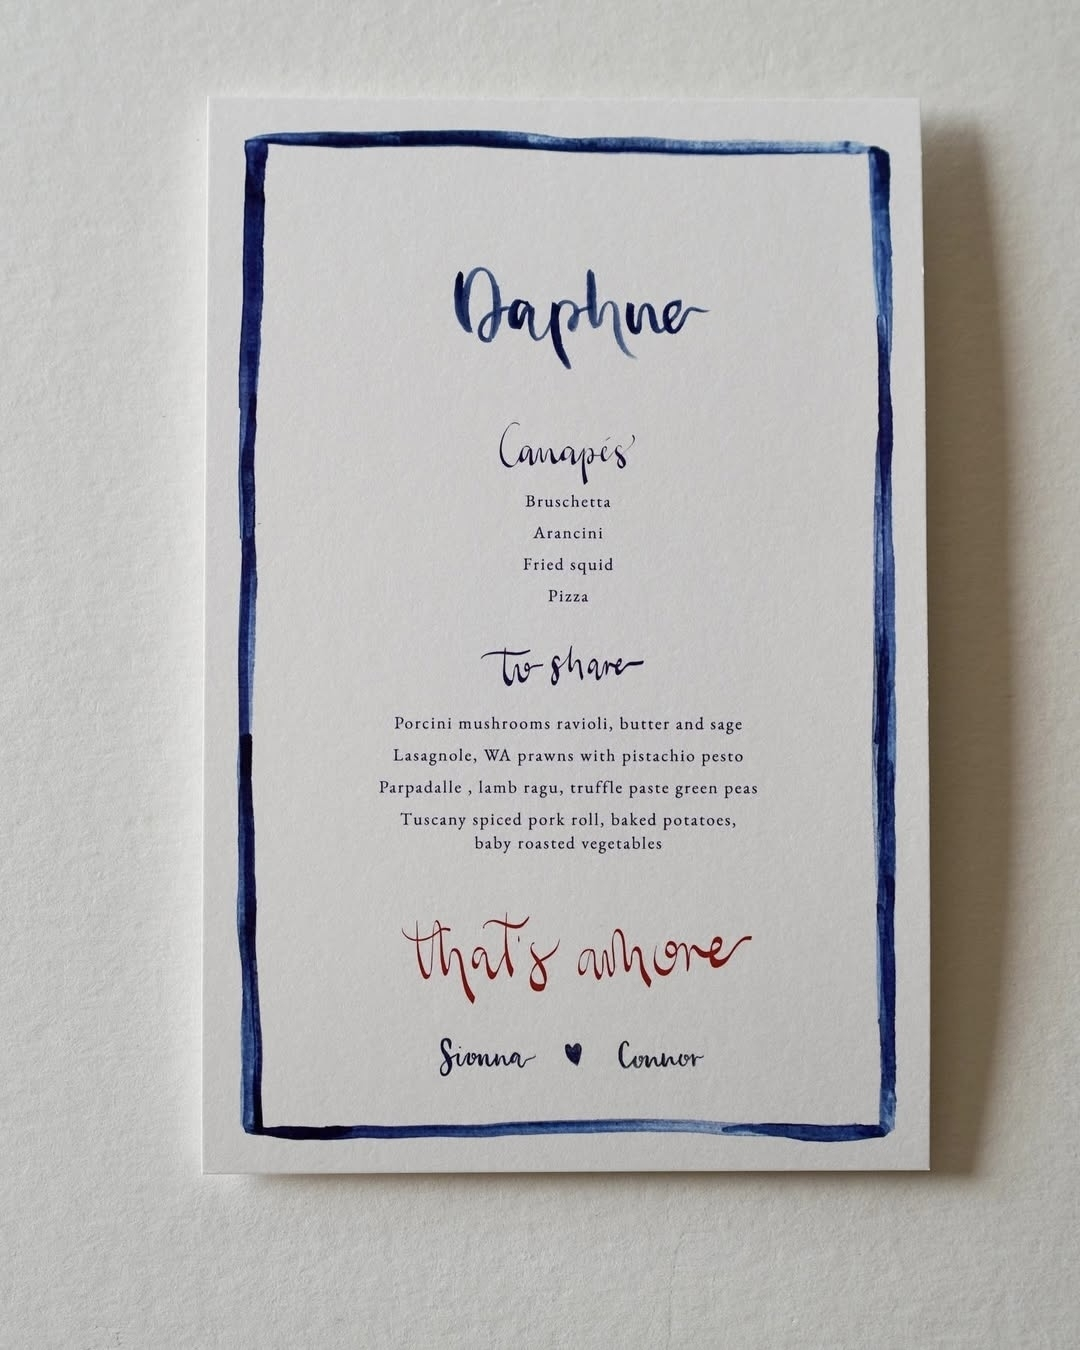 Daphne
Canapés
Bruschetta
Arancini
Fried squid
Pizza
to share
Porcini mushrooms ravioli, butter and sage
Lasagnole, WA prawns with pistachio pesto
Parpadalle , lamb ragu, truffle paste green peas
Tuscany spiced pork roll, baked potatoes,
baby roasted vegetables
that's amore
Sionna ♥ Connor